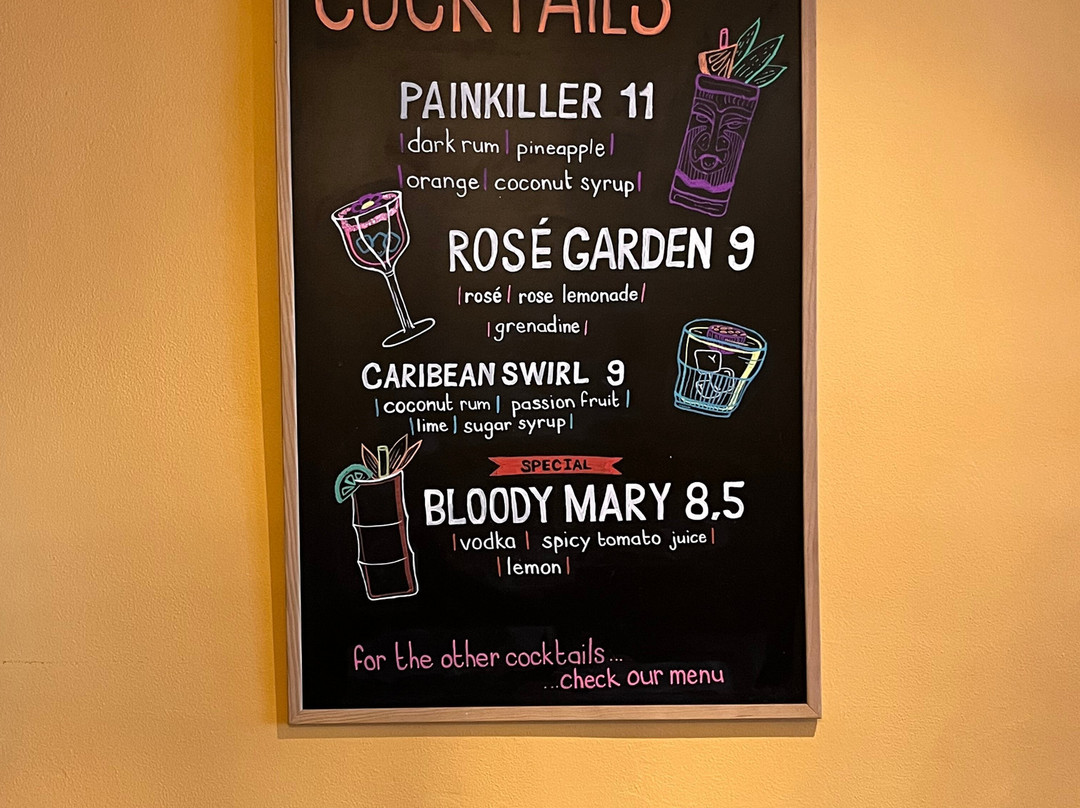 COCKTAILS
PAINKILLER 11
|dark rum| pineapple|
|orange| coconut syrup|
ROSÉ GARDEN 9
|rosé| rose lemonade|
|grenadine|
CARIBEAN SWIRL 9
|coconut rum| passion fruit|
|lime| sugar syrup|
SPECIAL
BLOODY MARY 8,5
|vodka| spicy tomato juice|
|lemon|
for the other cocktails...
...check our menu